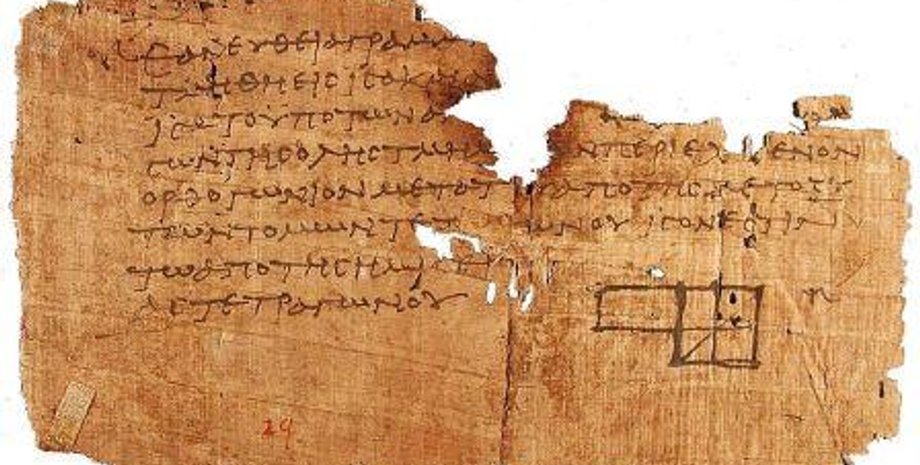 ΕΑΝ ΕΥΘΕΙΑ ΓΡΑΜΜ
ΤΜΗΘΗ ΕΙϹ ΙϹΑ ΚΑΙ
ΙϹΑ ΤΟ ΥΠΟ ΤΩΝ Α
ϹΩΝ ΤΗϹ ΟΛΗϹ ΤΜΗΜ Ν ΠΕΡΙΕΧ ΜΕΝΟΝ
ΟΡΘΟΓΩΝΙΟΝ ΑΠΟ ΤΗϹ ΜΕΤΟΞΥ
ΤΟΜΩΝ ΤΕΤ ΩΝΟΥ ΙϹΟΝ ΕϹΤΙΝ
ΤΩ ΑΠΟ ΤΗϹ ΗΜΙϹΕΙ
ΑϹ ΤΕΤΡΑΓΩΝΟΥ
29